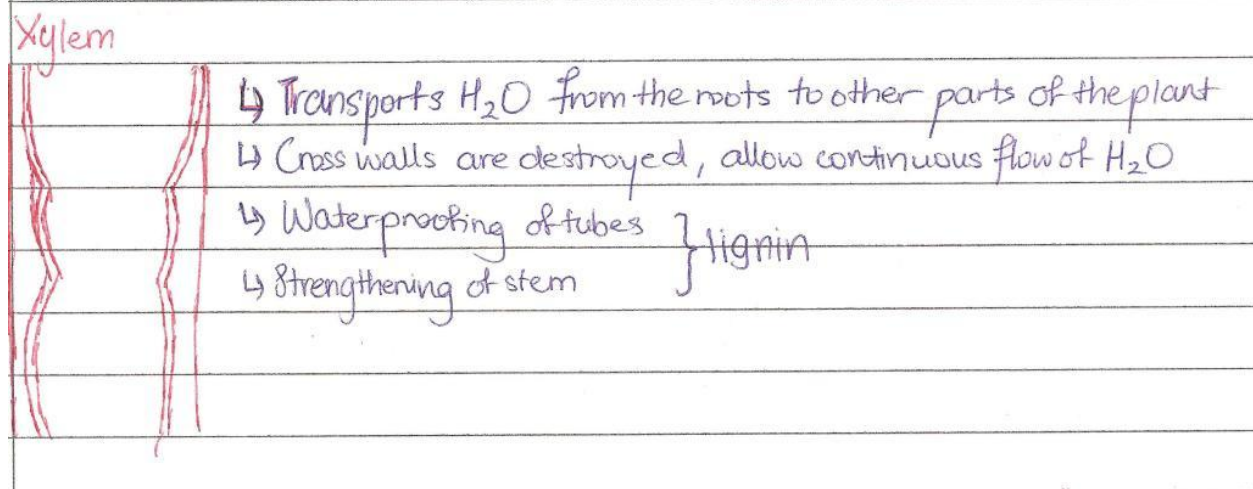 Xylem
↳ Transports H₂O from the roots to other parts of the plant
↳ Cross walls are destroyed, allow continuous flow of H₂O
↳ Waterproofing of tubes
↳ Strengthening of stem } lignin